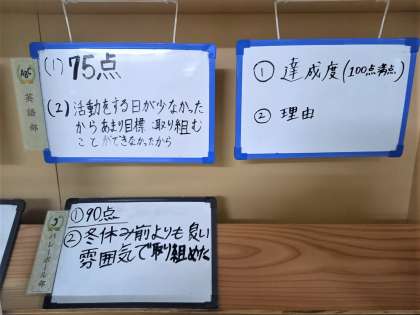 ABC
英語部
(1) 75点
(2) 活動をする日が少なかった
からあまり目標 取り組む
ことができなかったから
① 達成度(100点満点)
② 理由
バレーボール部
①90点
②冬休み前よりも良い
雰囲気で取り組めた